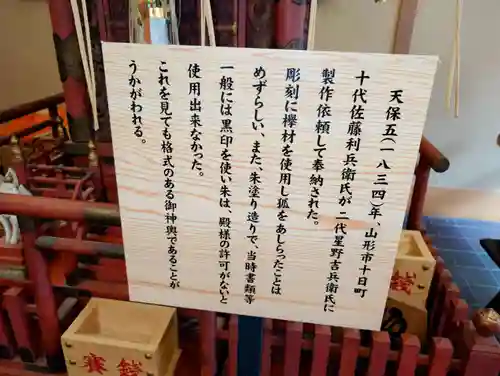 天保五(一八三四)年、山形市十日町
十代佐藤利兵衛氏が二代星野吉兵衛氏に
製作依頼して奉納された。
彫刻に欅材を使用し狐をあしらったことは
めずらしい、また、朱塗り造りで、当時書類等
一般には黒印を使い朱は、殿様の許可がないと
使用出来なかった。
これを見ても格式のある御神輿であることが
うかがわれる。
賽銭
賽銭